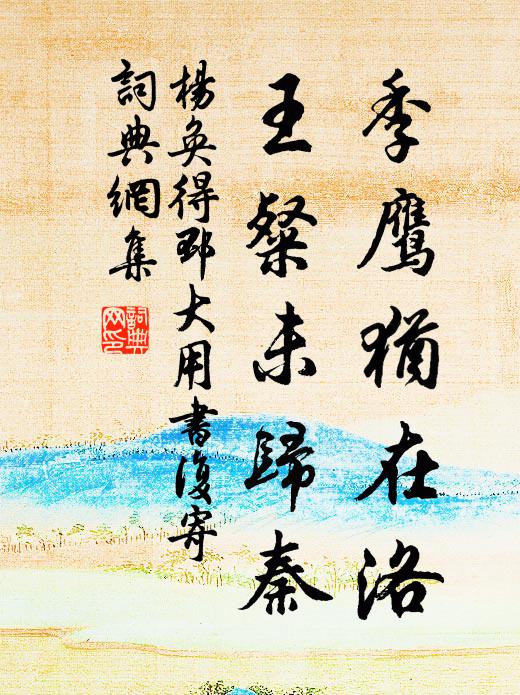 季鹰猶在洛
王粲未歸秦
楊奐得邳大用書復寄
詞典網集
詞典網印